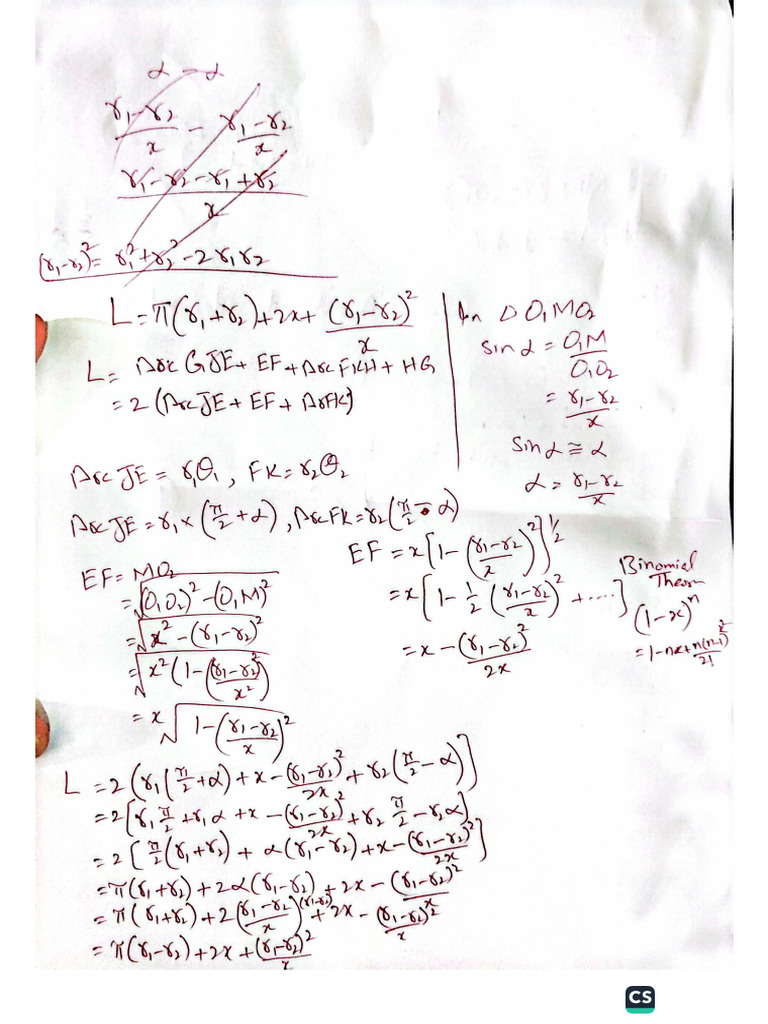 α - α
(r₁-r₂)/x - (r₁-r₂)/x
(r₁-r₂-r₁+r₂)/x
(r₁-r₂)² = r₁²+r₂²-2r₁r₂
L = π(r₁+r₂)+2x+ (r₁-r₂)²/x
L = Arc GJE + EF + Arc FKH + HG
= 2 (Arc JE + EF + ArFK)
In Δ O₁MO₂
sin α = O₁M/O₁O₂
= (r₁-r₂)/x
sin α ≅ α
α = (r₁-r₂)/x
Arc JE = r₁θ₁ , FK = r₂θ₂
Arc JE = r₁ × (π/2 + α) , Arc FK = r₂(π/2 - α)
EF = MO₂
= √((O₁O₂)² - (O₁M)²)
= √(x² - (r₁-r₂)²)
= √(x²(1-((r₁-r₂)²/x²))
= x √(1-((r₁-r₂)/x)²)
EF = x[1-((r₁-r₂)/x)²]^(1/2)
= x[1- 1/2 ((r₁-r₂)/x)² + ....]
= x - (r₁-r₂)²/2x
Binomial
Theorm
(1-x)ⁿ
= 1-nx+n(n-1)/2! ²
L = 2 (r₁(π/2+α) + x - (r₁-r₂)²/2x + r₂(π/2 - α)]
= 2[r₁ π/2 + r₁α + x - (r₁-r₂)²/2x + r₂ π/2 - r₂α]
= 2[π/2(r₁+r₂) + α(r₁-r₂) + x - (r₁-r₂)²/2x]
= π(r₁+r₂) + 2α(r₁-r₂) + 2x - (r₁-r₂)²/x
= π(r₁+r₂) + 2((r₁-r₂)/x)(r₁-r₂) + 2x - (r₁-r₂)²/x
= π(r₁-r₂) + 2x + (r₁-r₂)²/x
CS